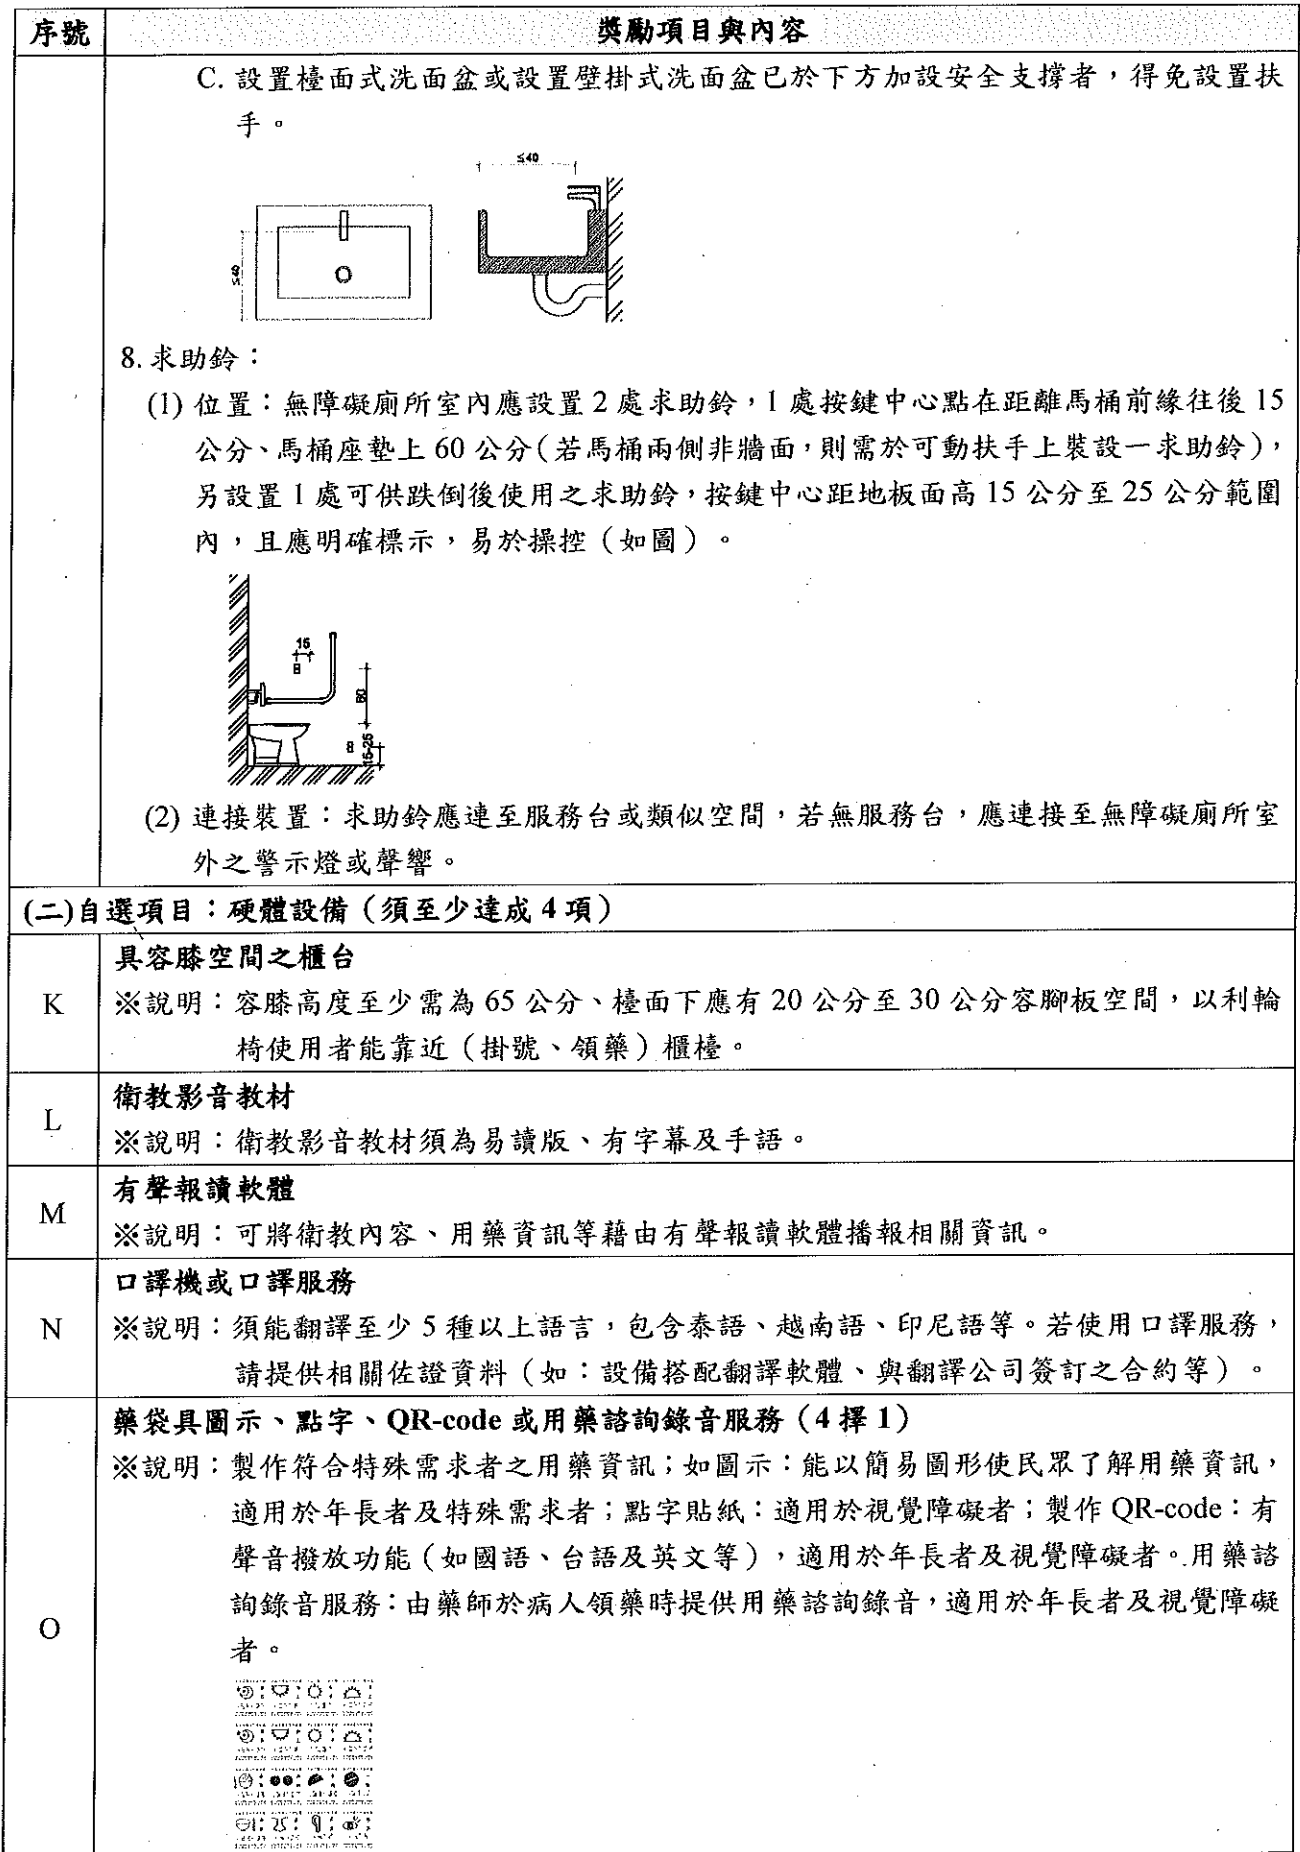 序號 獎勵項目與內容
C. 設置檯面式洗面盆或設置壁掛式洗面盆已於下方加設安全支撐者，得免設置扶
手。
≤40
≤40
8. 求助鈴：
(1) 位置：無障礙廁所室內應設置 2 處求助鈴，1 處按鍵中心點在距離馬桶前緣往後 15
公分、馬桶座墊上 60 公分（若馬桶兩側非牆面，則需於可動扶手上裝設一求助鈴），
另設置 1 處可供跌倒後使用之求助鈴，按鍵中心距地板面高 15 公分至 25 公分範圍
內，且應明確標示，易於操控（如圖）。
15
60
15-25
(2) 連接裝置：求助鈴應連至服務台或類似空間，若無服務台，應連接至無障礙廁所室
外之警示燈或聲響。
(二)自選項目：硬體設備（須至少達成 4 項）
具容膝空間之櫃台
K ※說明：容膝高度至少需為 65 公分、檯面下應有 20 公分至 30 公分容腳板空間，以利輪
椅使用者能靠近（掛號、領藥）櫃檯。
衛教影音教材
L ※說明：衛教影音教材須為易讀版、有字幕及手語。
有聲報讀軟體
M ※說明：可將衛教內容、用藥資訊等藉由有聲報讀軟體播報相關資訊。
口譯機或口譯服務
N ※說明：須能翻譯至少 5 種以上語言，包含泰語、越南語、印尼語等。若使用口譯服務，
請提供相關佐證資料（如：設備搭配翻譯軟體、與翻譯公司簽訂之合約等）。
藥袋具圖示、點字、QR-code 或用藥諮詢錄音服務（4 擇 1）
※說明：製作符合特殊需求者之用藥資訊；如圖示：能以簡易圖形使民眾了解用藥資訊，
適用於年長者及特殊需求者；點字貼紙：適用於視覺障礙者；製作 QR-code：有
聲音撥放功能（如國語、台語及英文等），適用於年長者及視覺障礙者。用藥諮
O 詢錄音服務：由藥師於病人領藥時提供用藥諮詢錄音，適用於年長者及視覺障礙
者。